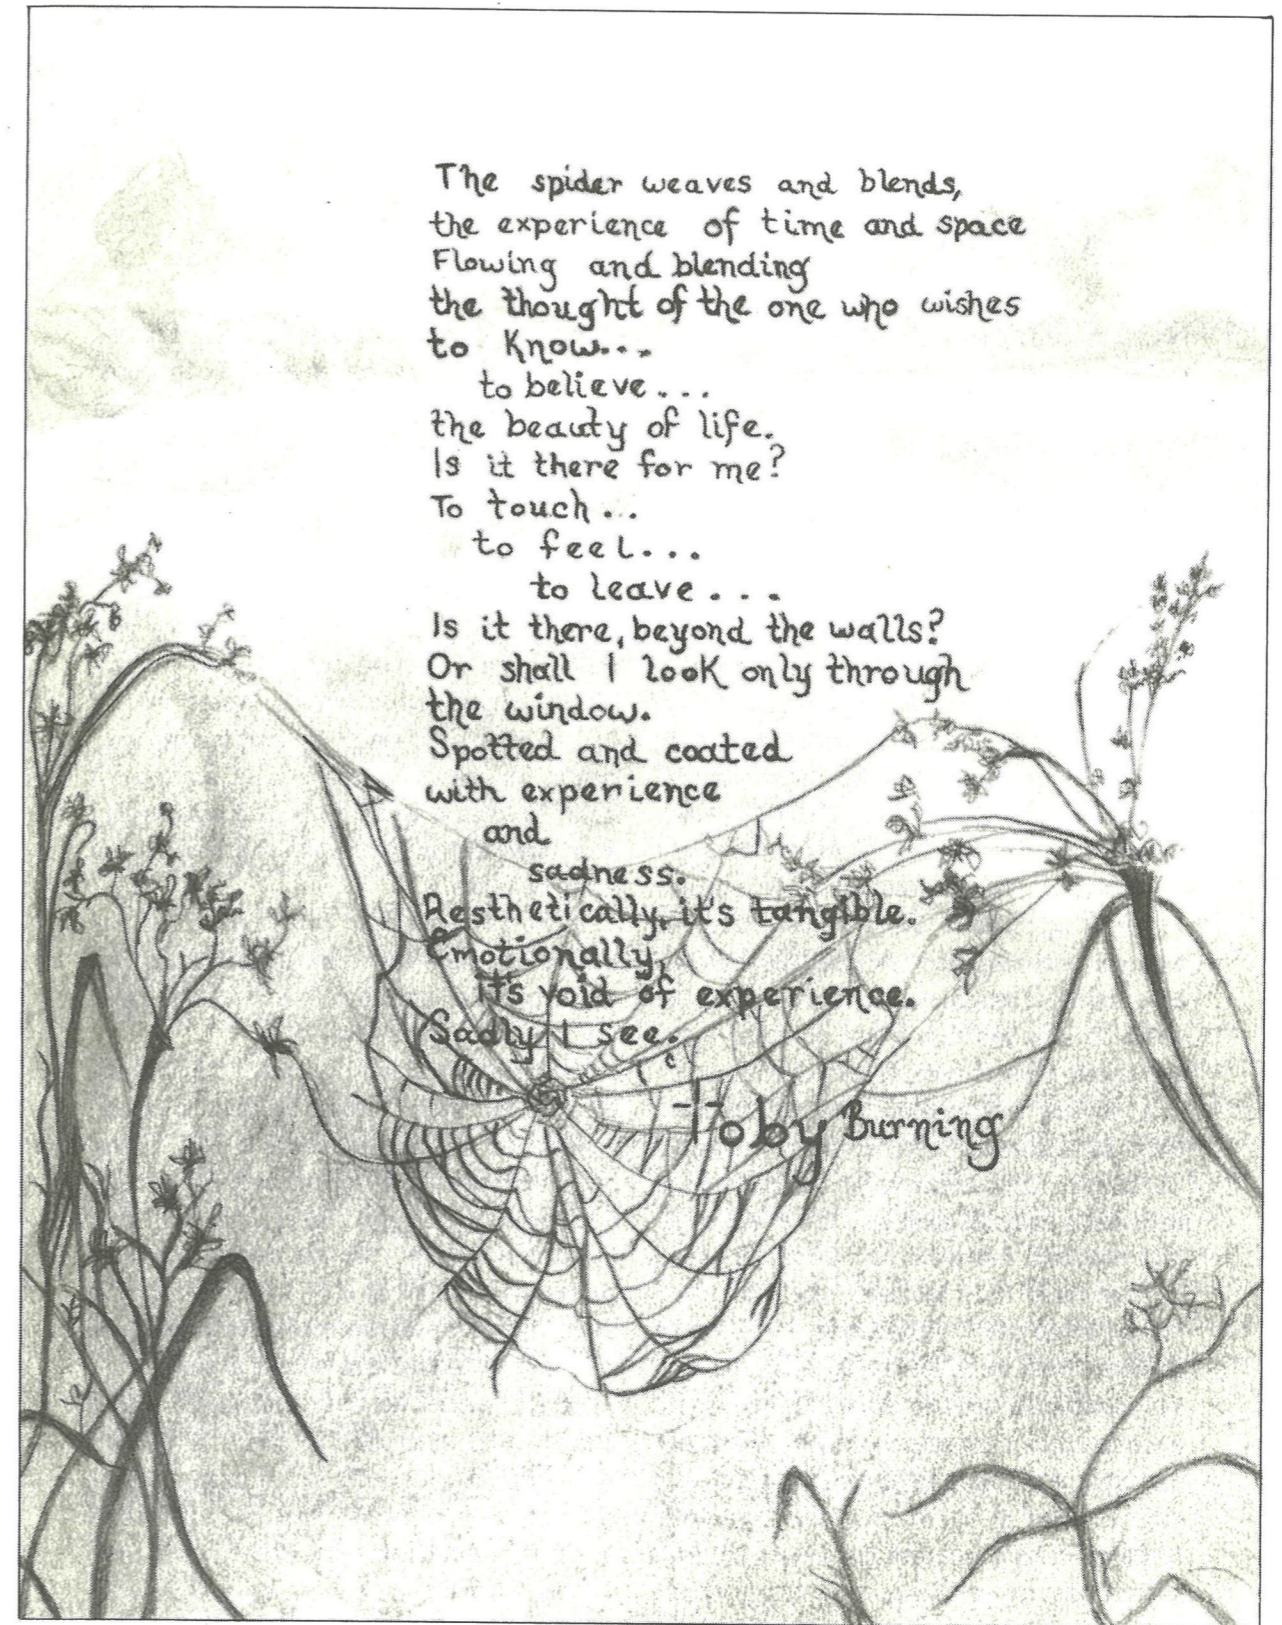 The spider weaves and blends,
the experience of time and space
Flowing and blending
the thought of the one who wishes
to know...
to believe...
the beauty of life.
Is it there for me?
To touch...
to feel...
to leave...
Is it there, beyond the walls?
Or shall I look only through
the window.
Spotted and coated
with experience
and
sadness.
Aesthetically, it's tangible.
Emotionally,
it's void of experience.
Sadly I see.
Toby Burning